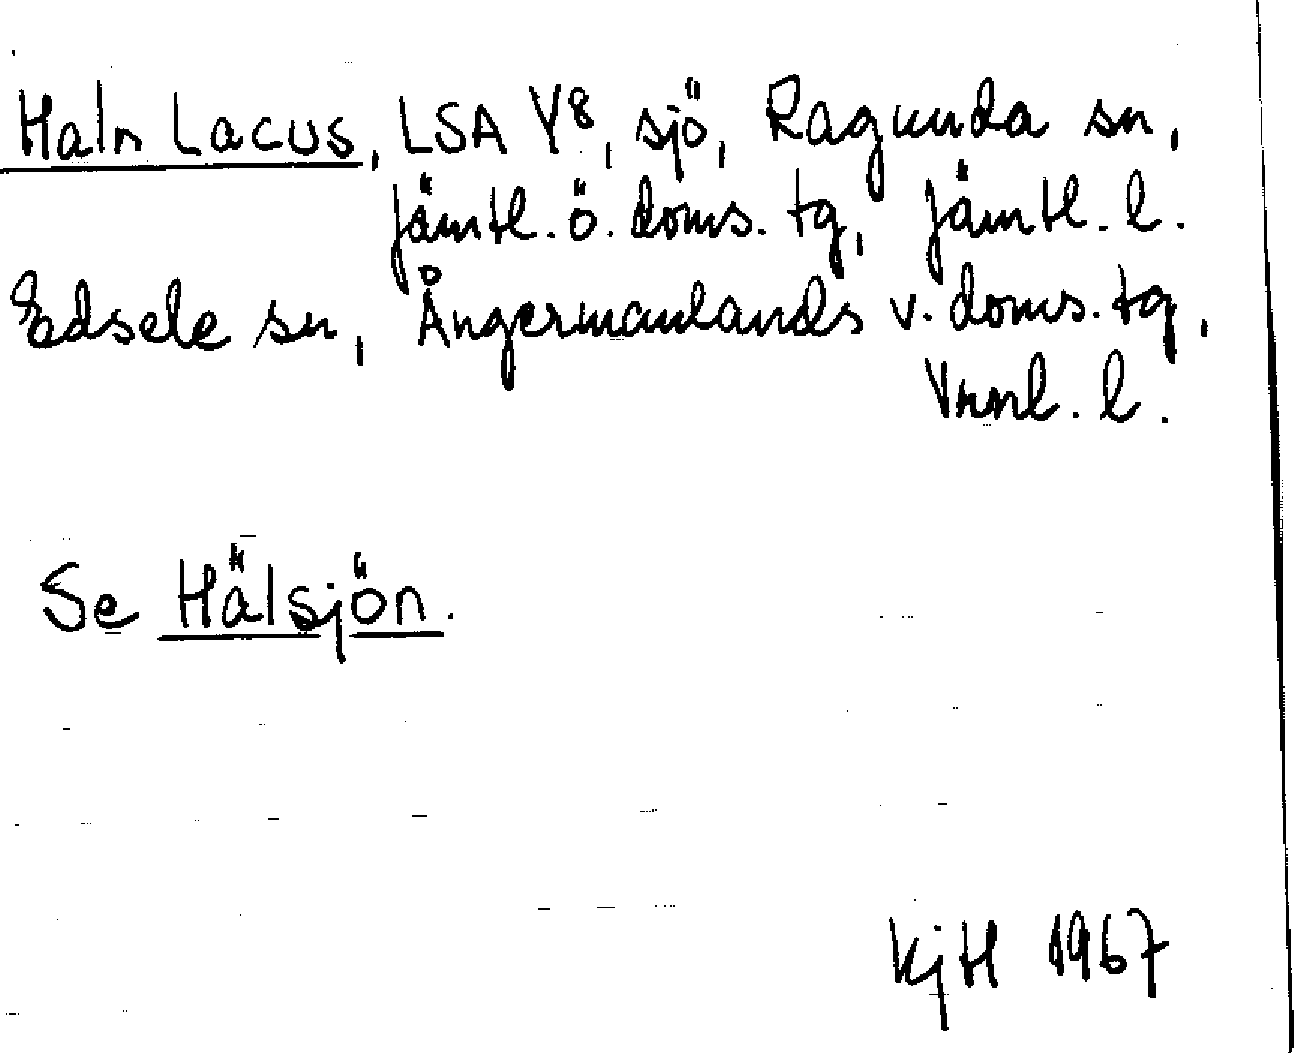 Haln Lacus, LSA Y8, sjö, Ragunda sn,
Jämtl. ö. doms. tg, Jämtl. l.
Edsele sn, Ångermanlands v. doms. tg,
Vnrl. l.
Se Hälsjön.
KjH 1967